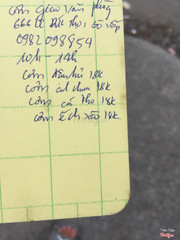 Cơm giao văn phòng
666 Lê Đức Thọ, Gò Vấp
0982098954
10h - 14h
Cơm 18k
Cơm 18k
Cơm cá kho 18k
Cơm ếch xào 18k